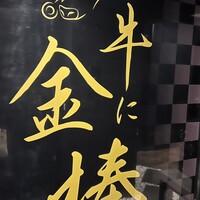 牛に
金棒